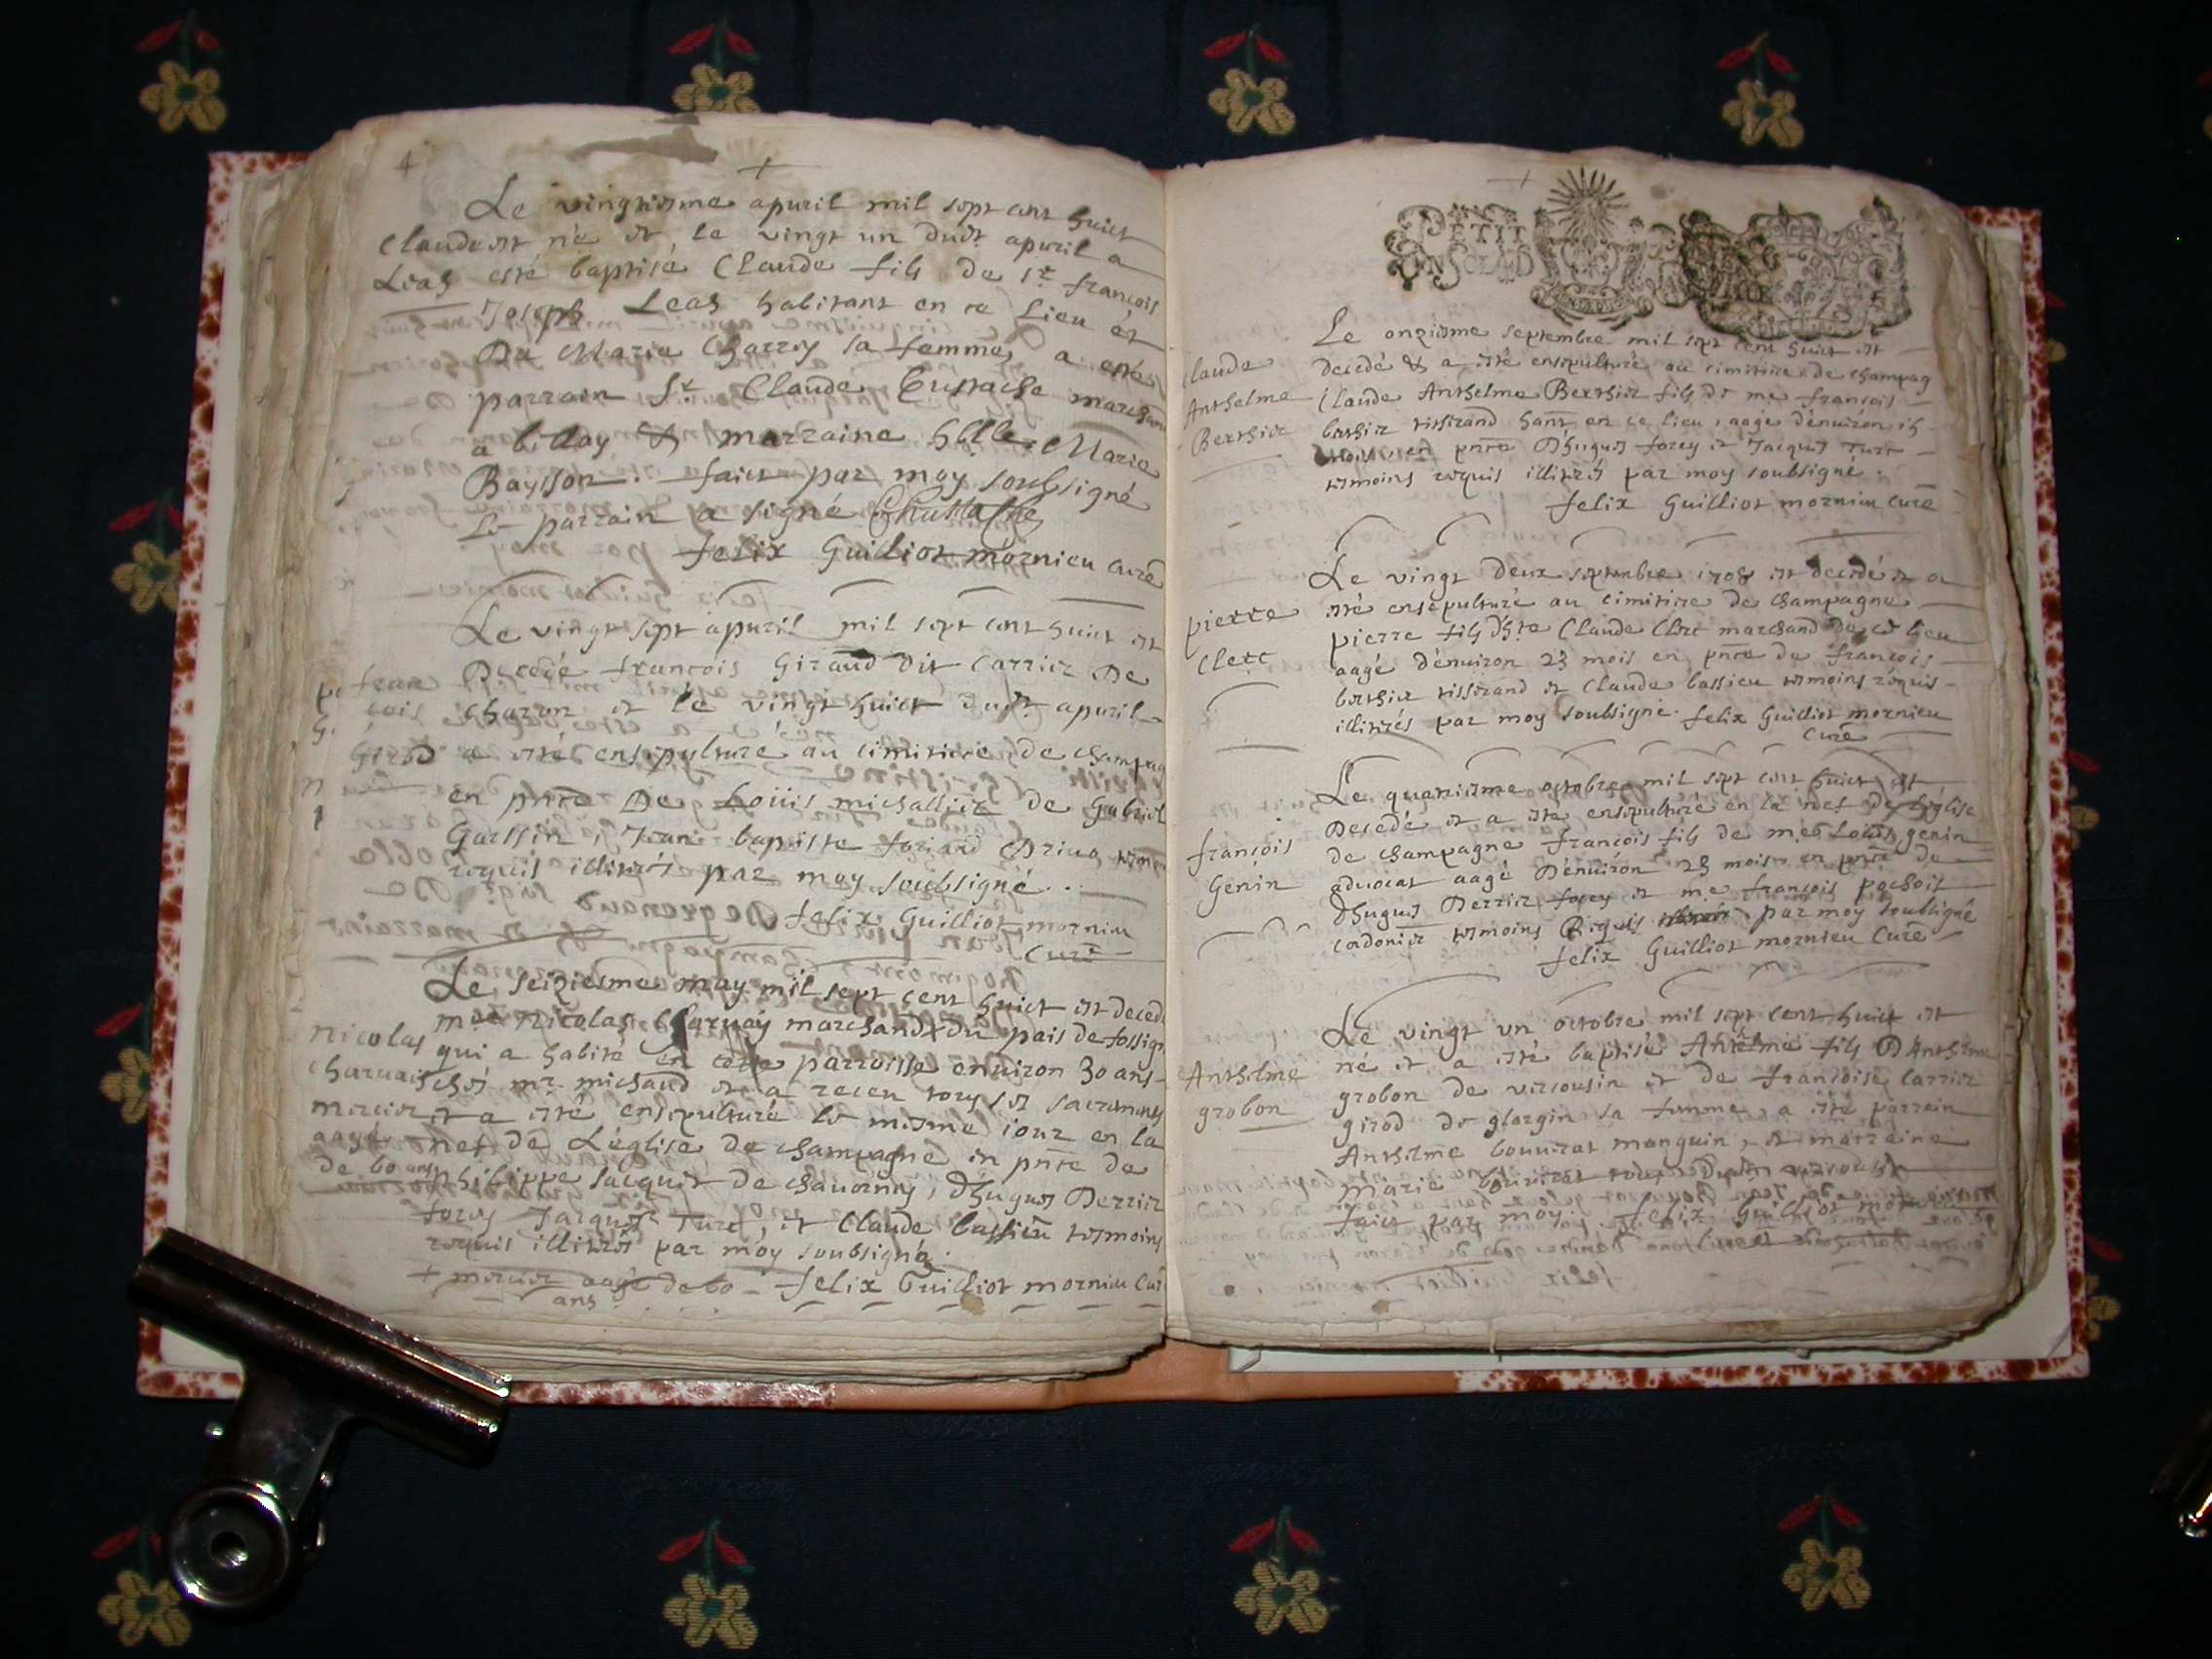 4
Le vingtiesme apuril mil sept cent huict
Claude est né et le vingt un dudt apuril a
Leas esté baptisé Claude fils de sr françois
Joseph Leas habitant en ce lieu et
De Marie Charroy sa femme, a esté
parrain sr Claude Eustache marchand
a billay & marraine hble Marie
Baysson. faict par moy soubsigné
Le parrain a signé
felix Guilliot mornieu curé
Le vingt sept apuril mil sept cent huict est
fran Decedé francois Giraud dit Carrier De
cois et le vingt huict dudt apuril
Girod a esté ensepulturé au cimitiere de champag
en pnce De Louis michallier de Gabriel
Garssin, Jean baptiste
requis illitrés par moy soubsigné
felix Guilliot mornieu
Curé
Le seiziesme may mil sept cent huict est deced
mre Nicolas Charuay marchand + du pais de fossign
Nicolas qui a habité en cette parroisse enuiron 30 ans
Charuais chés mr michaud et a receu tous ses sacremens
mercier et a esté ensepulturé le mesme iour en la
aagé nef de L'église de champagne en pnce de
de 60 ans philippe Jacquet de chauornay, d'hugues Derrier
forey Jacques Turc, et Claude bassieu tesmoins
requis illitrés par moy soubsigné
+ mercier aagé de 60 felix Guilliot mornieu Cur
ans
PETIT
Le onziesme septembre mil sept cent huict est
Claude decedé & a esté ensepulturé au cimitiere de champag
Anthelme Claude Anthelme Berthier fils de me francois
Berthier berthier tisserand hant en ce lieu, aagé d'enuiron
mois, en pnce D'hugues forey et Jacques Turc
tesmoins requis illitrés par moy soubsigné.
felix Guilliot mornieu Curé
Le vingt deux septembre 1708 est decedé et a
pierre esté ensepulturé au cimitiere de champagne
Clerc pierre fils d'hte Claude Clerc marchand de ce lieu
aagé d'enuiron 23 mois en pnce de francois
berthier tisserand et Claude bassieu tesmoins requis
illitrés par moy soubsigné. felix Guilliot mornieu
Curé
Le octobre mil sept cent huict est
Decedé et a esté ensepulturé en la nef de L'église
francois de champagne françois fils de me Louis genin
Genin aduocat aagé D'enuiron 23 mois en pnce de
d'hugues Derrier forey et me françois pochoit
cordonier tesmoins Requis par moy soubsigné
felix Guilliot mornieu Curé
Le vingt un octobre mil sept cent huict est
Anthelme né et a esté baptisé Anthelme fils D'Anthelme
grobon grobon de vircousin et de francoise Carrier
girod de glargin sa femme, a esté parrain
Anthelme bouuirat manguin, et marraine
marie bouuirat
faict par moy. felix Guilliot mornieu